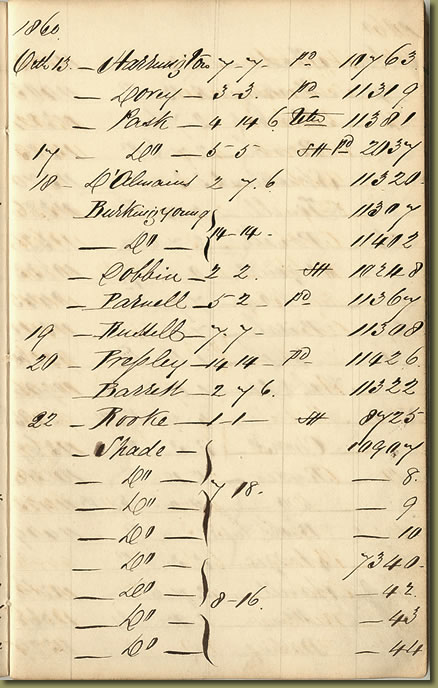 1860.
Octr 13 - Harrington 7-7- pd 10763
- Dovey - 3-3. pd 11319
- Pask - 4 14 6 11381
17 - Do - 5 5 pd 2037
18 - D'Almaine 2 7.6 11320
Burkinyoung 11307
- Do - 14-14- 11402
- Cobbin - 2 2. 10248
- Parnell - 5 2 - pd 11367
19 - Russell - 7.7- 11308
20 - Pressley - 14 14 - pd 11426
Barrett - 2 7 6. 11322
22 - Rooke - 1-1- 8725
- Shade - 10907
- Do - — 8.
7 18.
- Do - — 9
- Do - — 10
- Do - 7340.
- Do - 8-16. — 42
- Do - — 43
- Do - — 44